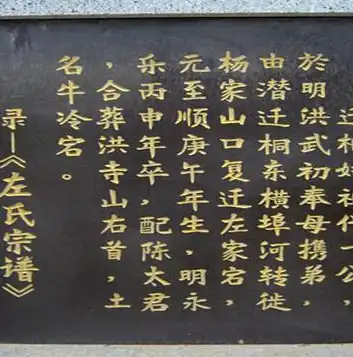 迁桐始祖代一公，
於明洪武初奉母携弟，
由潜迁桐东横埠河转徙
杨家山口复迁左家宕，
元至顺庚午年生，明永
乐丙申年卒，配陈太君
，合葬洪寺山右首，土
名牛冷宕。
录—《左氏宗谱》